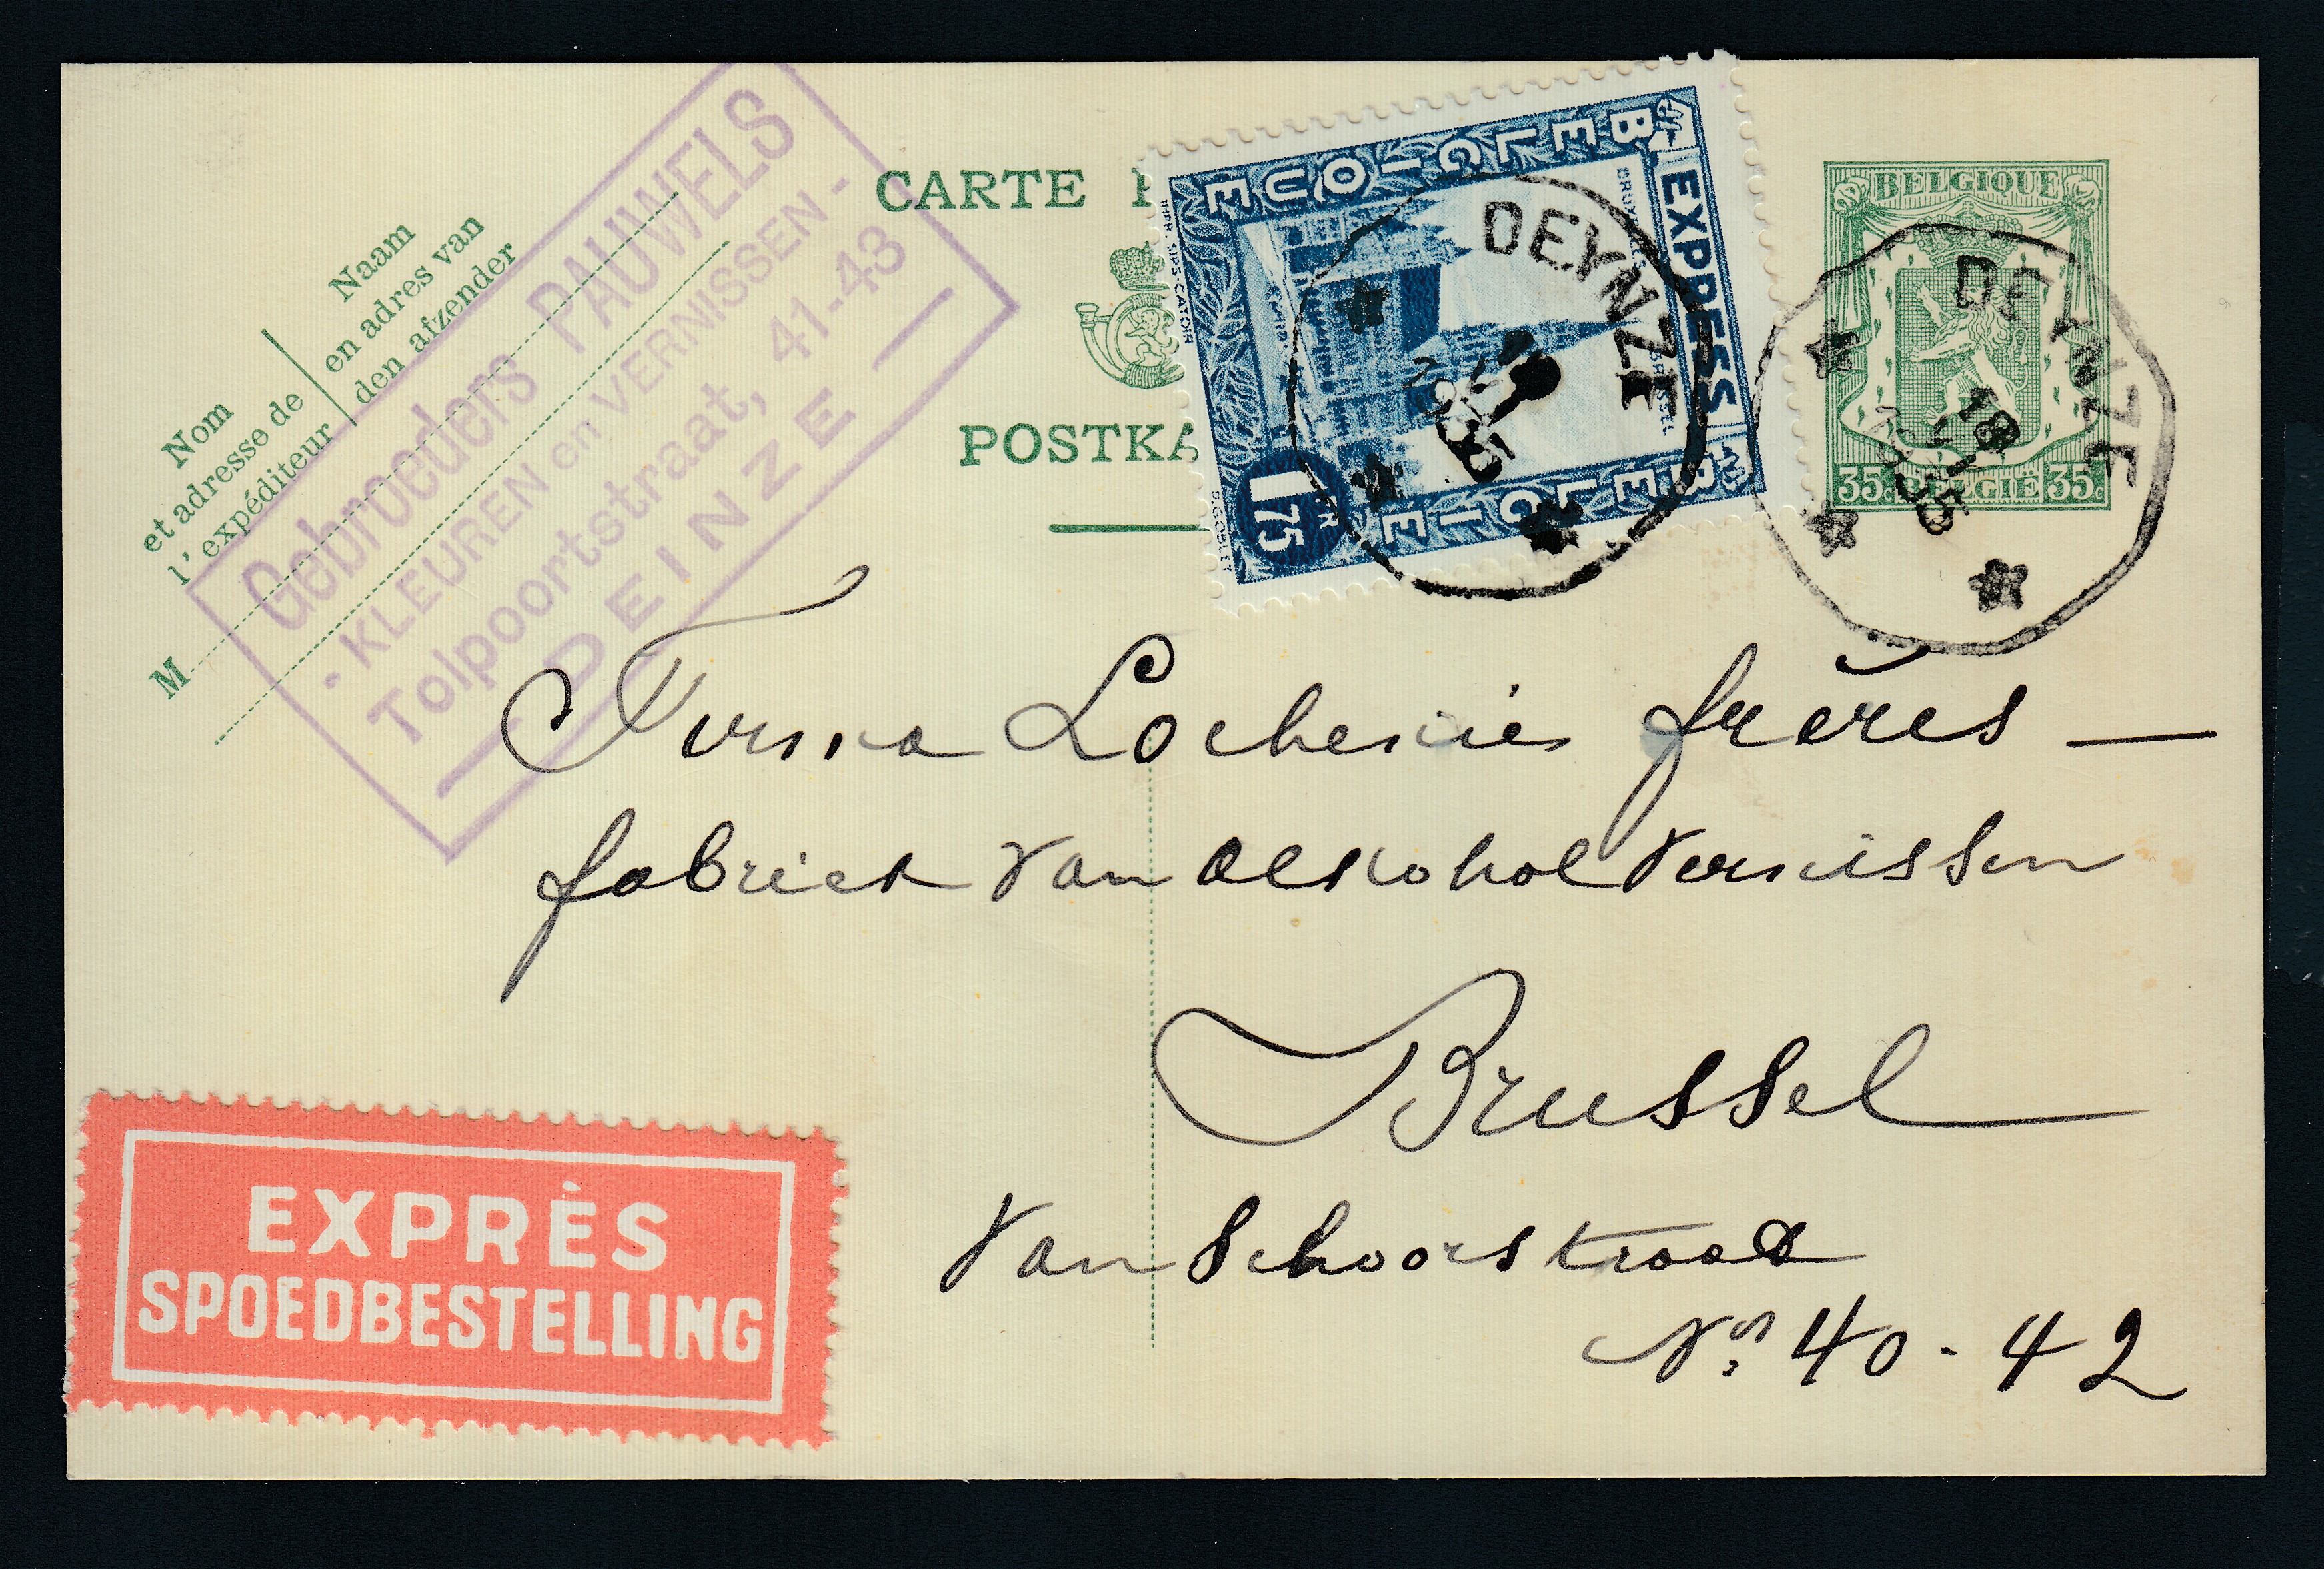 CARTE P
POSTKA
Nom
et adresse de
l'expéditeur
Naam
en adres van
den afzender
M
Gebroeders PAUWELS
- KLEUREN en VERNISSEN -
Tolpoortstraat, 41-43
DEINZE
BELGIQUE
EXPRES
BELGIE
1 FR 75
IMP. SIPS-CATOIR
DEYNZE
1935
BELGIQUE
35c BELGIË 35c
DEYNZE
18
1935
Firma Lochenies frères —
fabriek van alkohol vernissen
Brussel
Van Schoorstraat
Nos 40-42
EXPRÈS
SPOEDBESTELLING